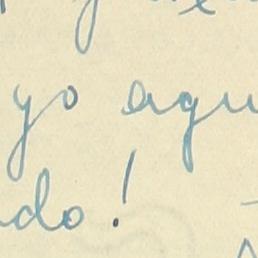 yo aqu
ndo!